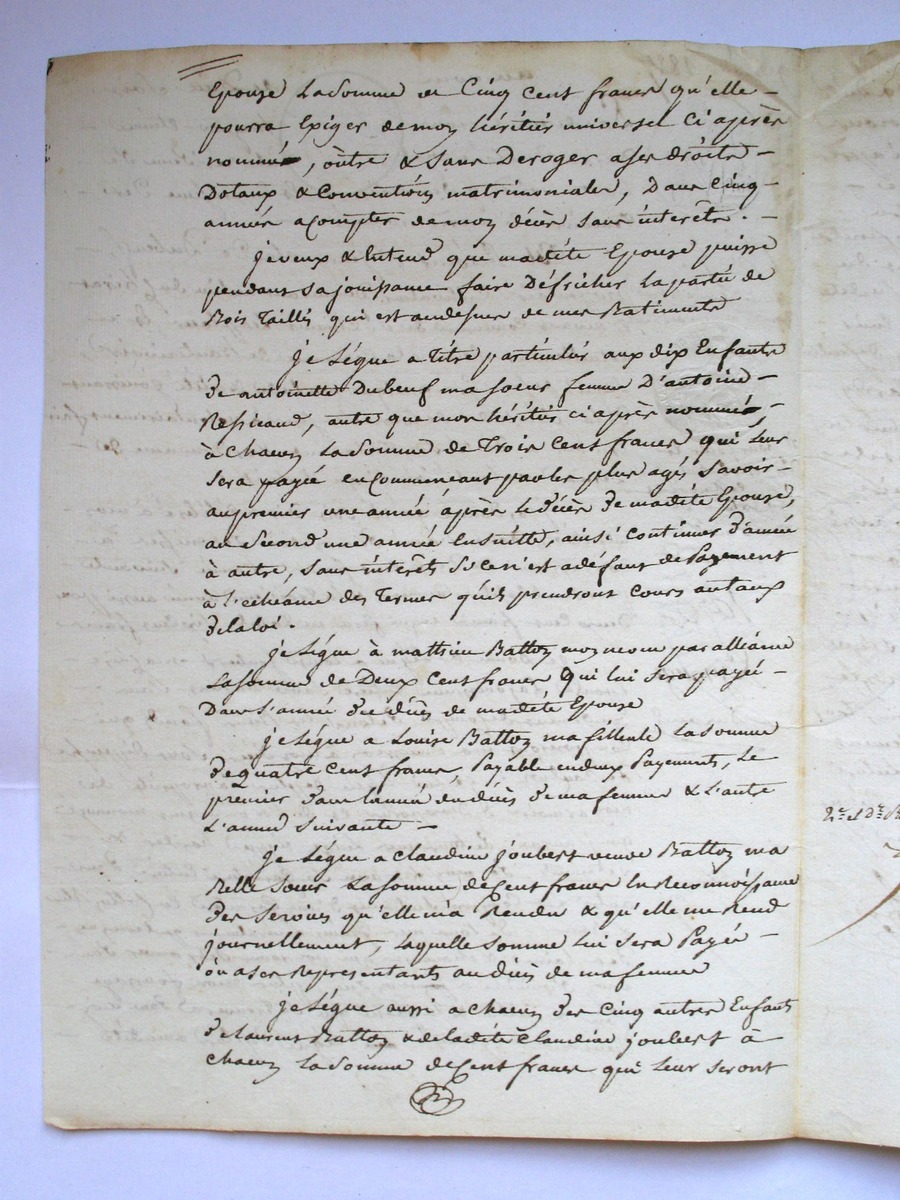 Epouse La Somme de Cinq cent francs qu'elle
pourra Exiger de mon héritier universel Ci après
nommé, oûtre & Sans Deroger a ses droits
Dotaux & Conventions matrimoniales, Dans Cinq
années a Compter de mon décès Sans interêts.
je veux & Entend que madite Epouse puisse
pendant Sa jouissance faire Défricher la partie de
Bois Taillis qui est au dessus de mes Batiments
je Légue a Titre particulier aux dix Enfants
de antoinette Dubeuf ma soeur femme D'antoine
autre que mon héritier ci après nommé,
à Chacun La Somme de Trois Cent francs qui Leur
Sera payée en Commencant par les plus agés Savoir
au premier une année après le décès de madite Epouse,
au Second une année Ensuitte, ainsi Continuer d'année
à autre, Sans interêts Si ce n'est a défaut de Payement
à l'echéance des Termes qu'ils prendront Cours au taux
de la loi.
je Légue à mathieu Battoy mon neveu par alliance
La somme de Deux Cent francs Qui lui Sera payée
Dans l'année du décès de madite Epouse
je Légue a Louise Battoy ma filleule La Somme
de quatre Cent francs, Payable en deux Payements, Le
premier dans l'année du décès de ma femme & L'autre
L'année Suivante
je Légue a Claudine joubert veuve Battoy ma
Belle Soeur La somme de Cent francs En Reconnoissance
des Services qu'elle m'a Rendu & qu'elle me Rend
journellement, Laquelle Somme Lui Sera Payée
ôu a ses Représentants au décès de ma femme
je Légue aussi a chacun des Cinq autres Enfants
de Laurent Battoy & de ladite Claudine joubert à
Chacun La Somme de Cent francs qui Leur Seront